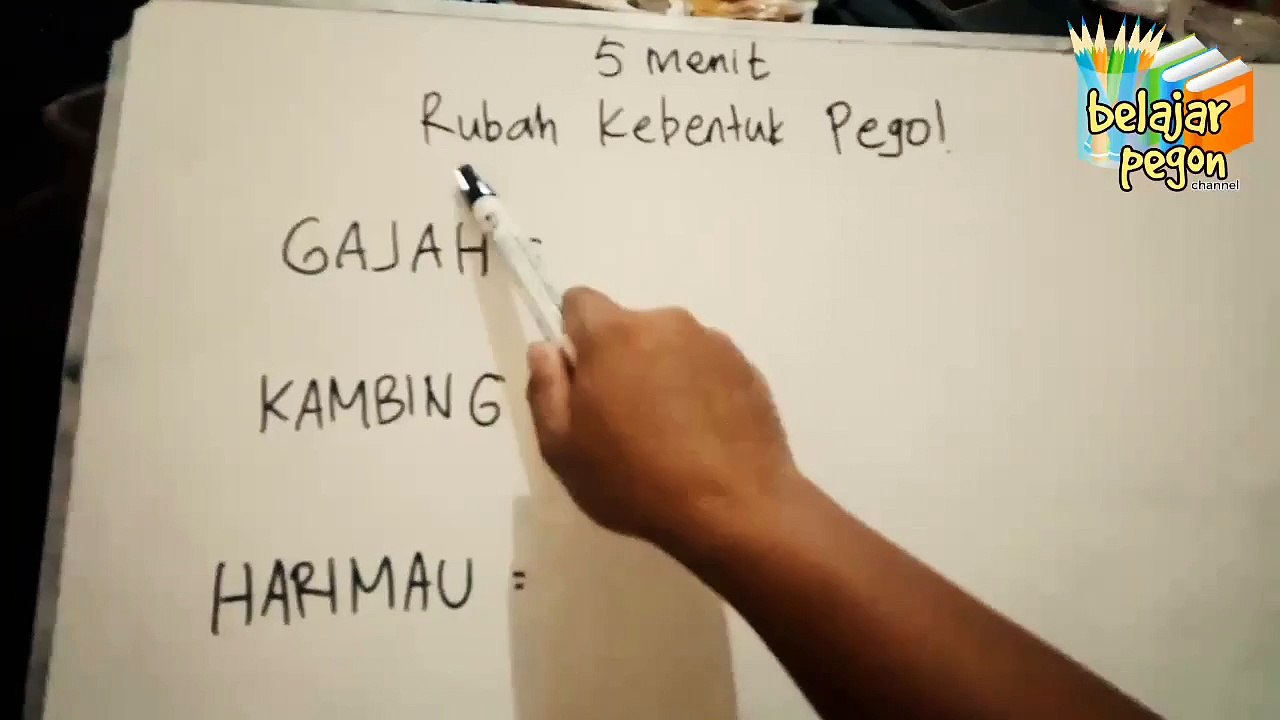 5 menit
Rubah Kebentuk Pego!
GAJAH =
KAMBING
HARIMAU =
belajar
pegon
channel